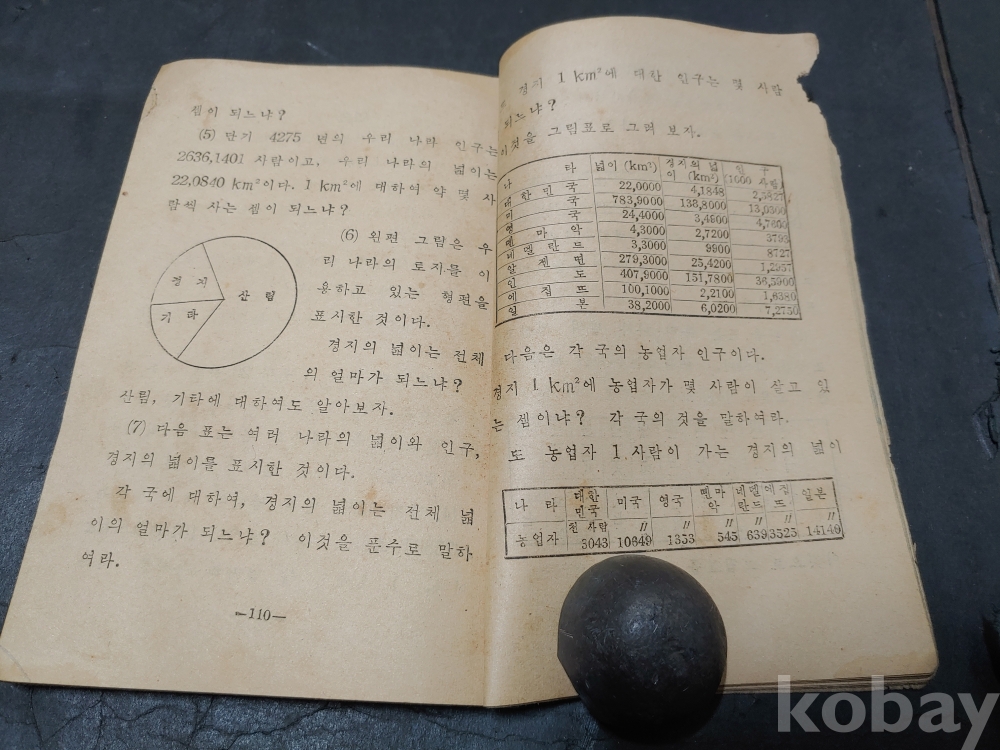 셈이 되느냐?
(5) 단기 4275 년의 우리 나라 인구는
2636,1401 사람이고, 우리 나라의 넓이는
22,0840 km²이다. 1 km²에 대하여 약 몇 사
람씩 사는 셈이 되느냐?
(6) 왼편 그림은 우
리 나라의 토지를 이
용하고 있는 형편을
표시한 것이다.
경지의 넓이는 전체
의 얼마가 되느냐?
경 지
산 림
기 타
산림, 기타에 대하여도 알아보자.
(7) 다음 표는 여러 나라의 넓이와 인구,
경지의 넓이를 표시한 것이다.
각 국에 대하여, 경지의 넓이는 전체 넓
이의 얼마가 되느냐? 이것을 푼수로 말하
여라.
—110—
경지 1 km²에 대한 인구는 몇 사람
되느냐?
이것을 그림표로 그려 보자.
나 라 넓이 (km²) 경지의 넓이 (km²) 인 구 1000 사람
대 한 민 국 22,0000 4,1848
국 783,9000 138,8000 13,0300
국 24,4000 3,4800
덴 마 악 4,3000 2,7200 3793
네 델 란 드 3,3000 9900 8727
알 젠 면 279,3000 25,4200 1,2957
인 도 407,9000 151,7800 36,5900
에 집 뜨 100,1000 2,2100 1,6380
일 본 38,2000 6,0200 7,2750
다음은 각 국의 농업자 인구이다.
경지 1 km²에 농업자가 몇 사람이 살고 있
는 셈이냐? 각 국의 것을 말하여라.
또 농업자 1 사람이 가는 경지의 넓이
나 라 대한민국 미국 영국 덴마악 네델란드 에집뜨 일본
천 사람 〃 〃 〃 〃 〃 〃
농업자 3043 10649 1353 545 639 3525 14140
kobay